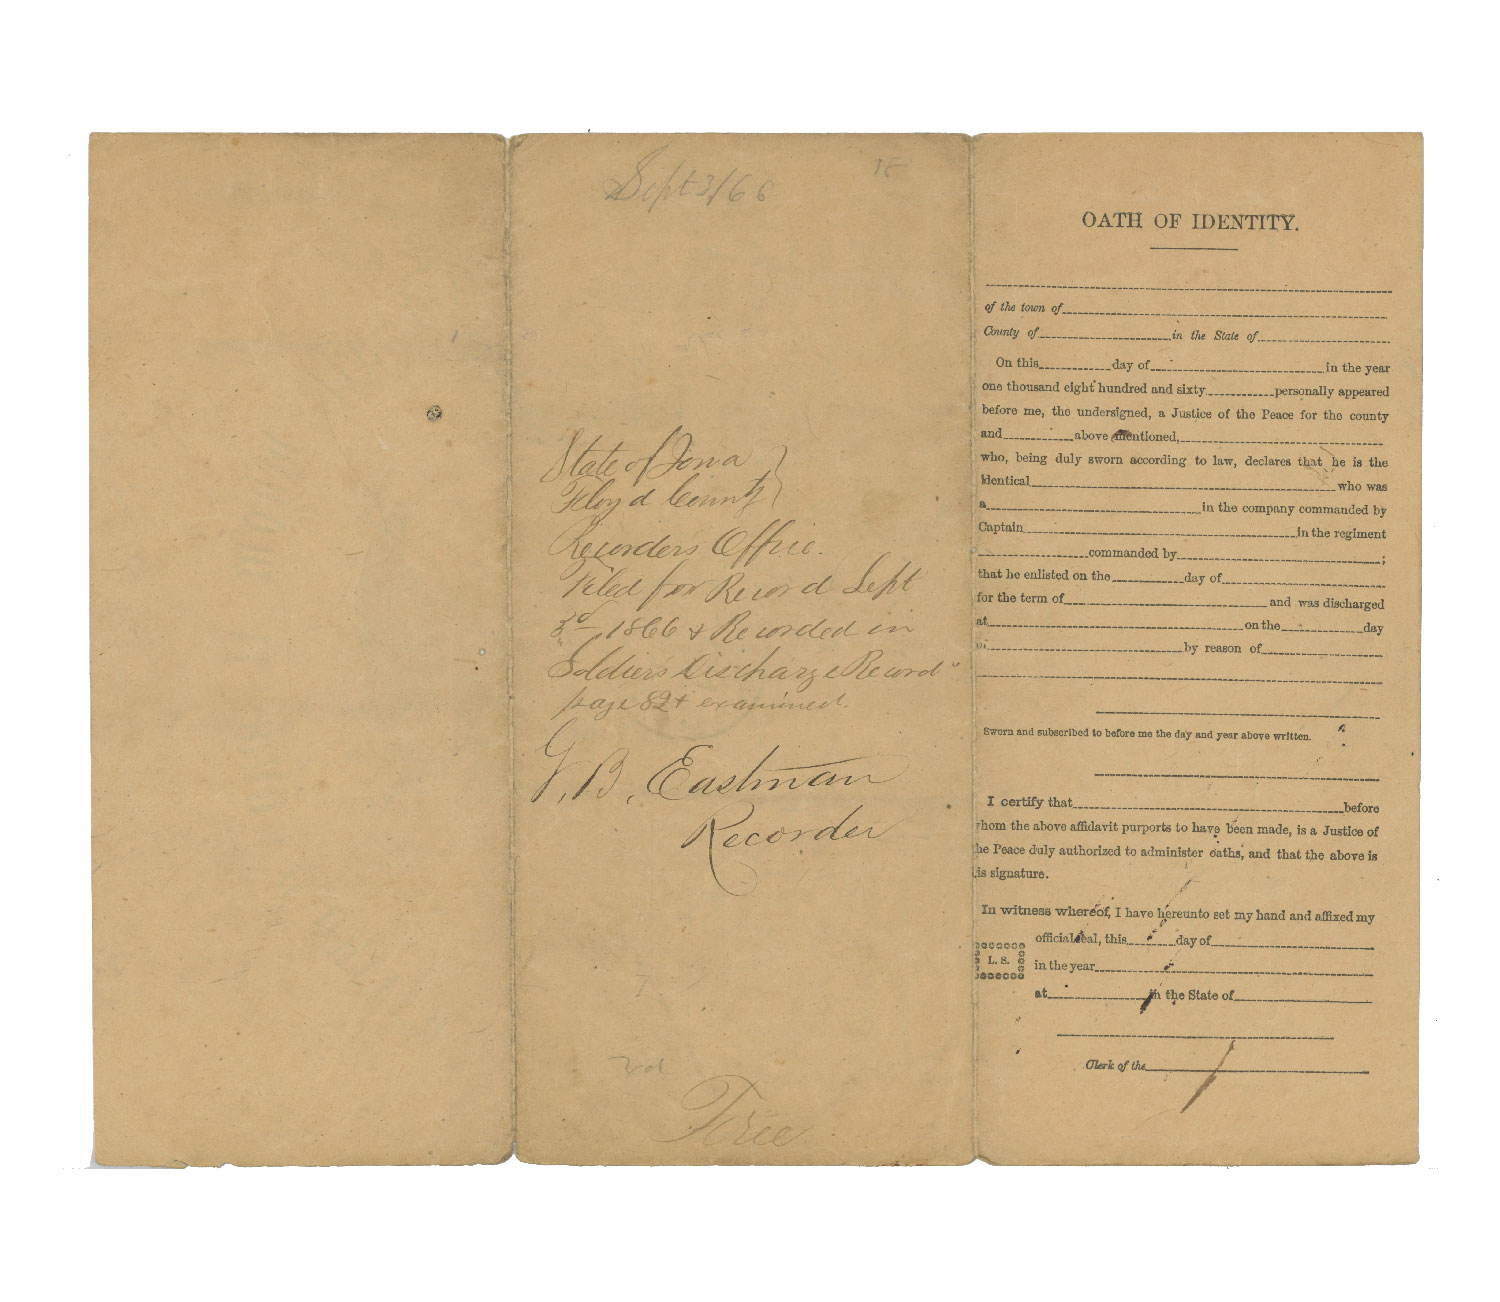 Sept 3/66
18
State of Iowa }
Floyd County }
Recorders Office.
Filed for Record Sept
3d 1866 & Recorded in
"Soldiers Discharge Record"
page 82 & examined.
G. B. Eastman
Recorder
2d
Free
OATH OF IDENTITY.
of the town of
County of in the State of
On this day of in the year
one thousand eight hundred and sixty personally appeared
before me, the undersigned, a Justice of the Peace for the county
and above mentioned,
who, being duly sworn according to law, declares that he is the
identical who was
a in the company commanded by
Captain in the regiment
commanded by ;
that he enlisted on the day of
for the term of and was discharged
at on the day
of by reason of
Sworn and subscribed to before me the day and year above written.
I certify that before
whom the above affidavit purports to have been made, is a Justice of
the Peace duly authorized to administer oaths, and that the above is
his signature.
In witness whereof, I have hereunto set my hand and affixed my
official seal, this day of
L. S.
in the year
at in the State of
Clerk of the